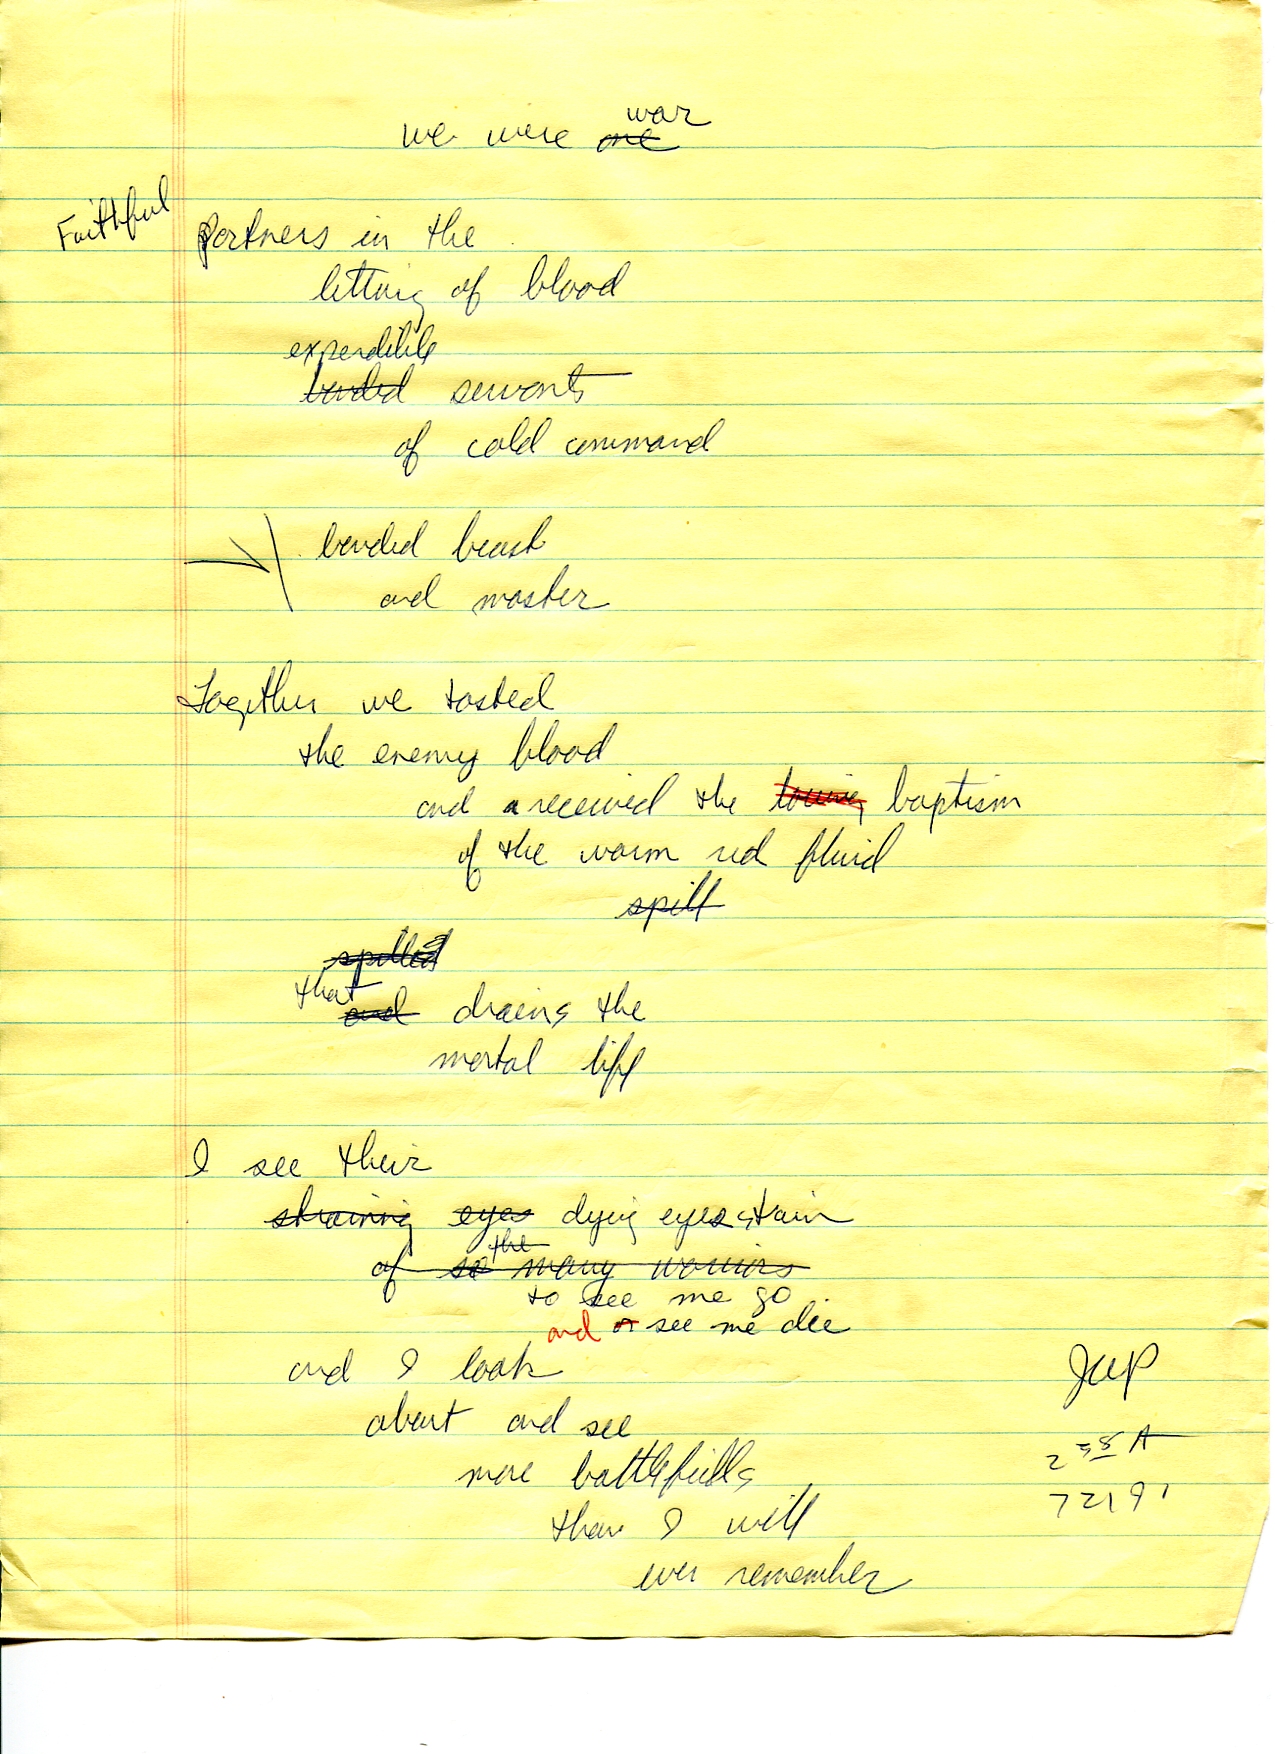 war
we were one
Faithful Partners in the
letting of blood
expendible
bonded servants
of cold command
bonded beast
and master
Together we tasted
the enemy blood
and received the baptism
of the warm red fluid
spill
spilled
that and drains the
mortal life
I see their
straining eyes dying eyes strain
the
of so many warriors
to see me go
and or see me die
and I look
about and see
more battlefields
than I will
ever remember
JWP
2 58 A
72191